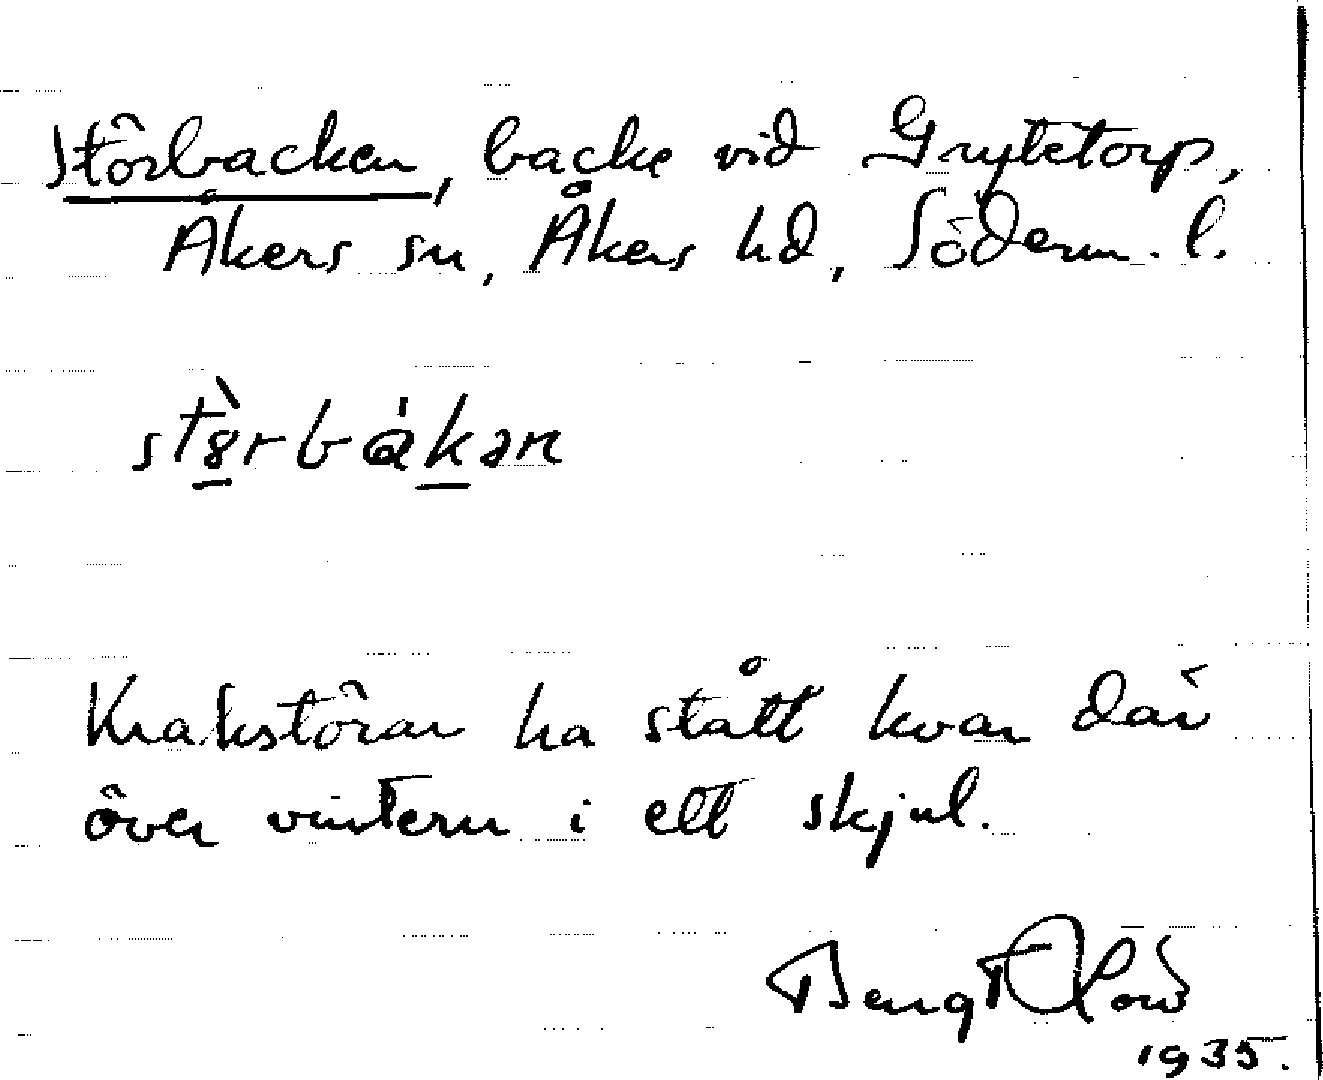 Störbacken, backe vid Grytetorp,
Åkers sn, Åkers hd, Söderm. l.
stø̀rbákan
Krakstörar ha stått kvar där
över vintern i ett skjul.
Bengt
1935.